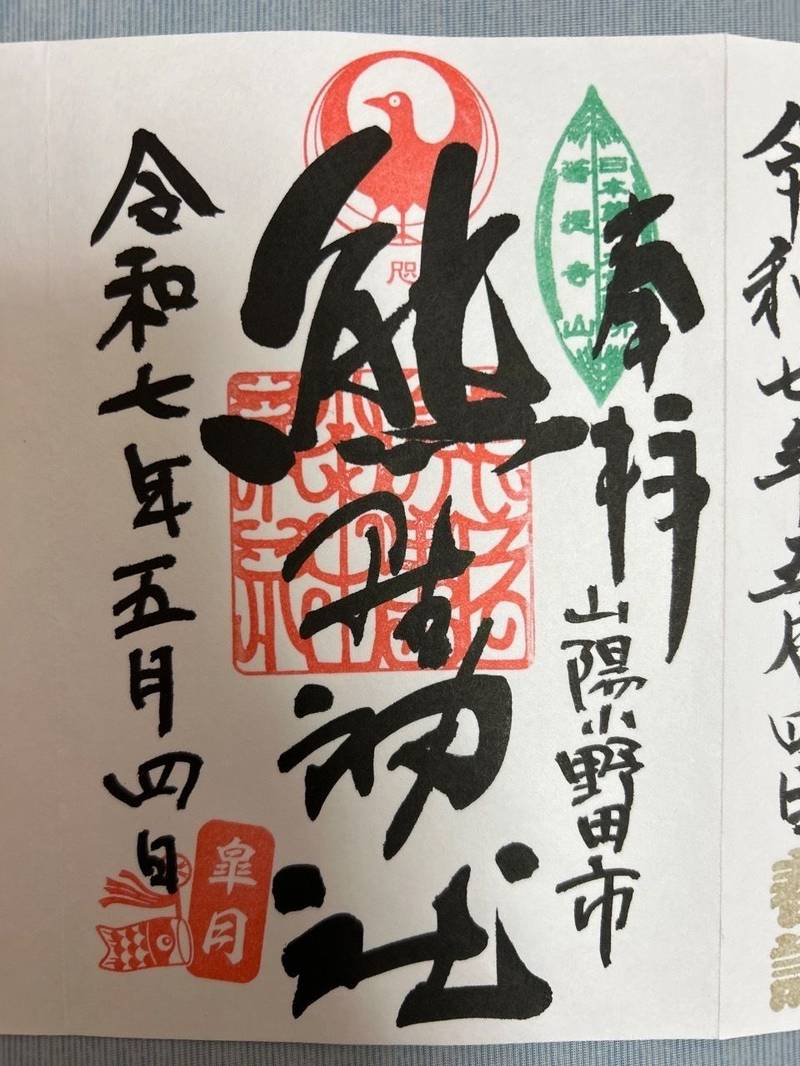 令和七年五月四日
奉拝
山陽小野田市
熊野神社
令和七年五月四日
菩提寺山
咫
皐月